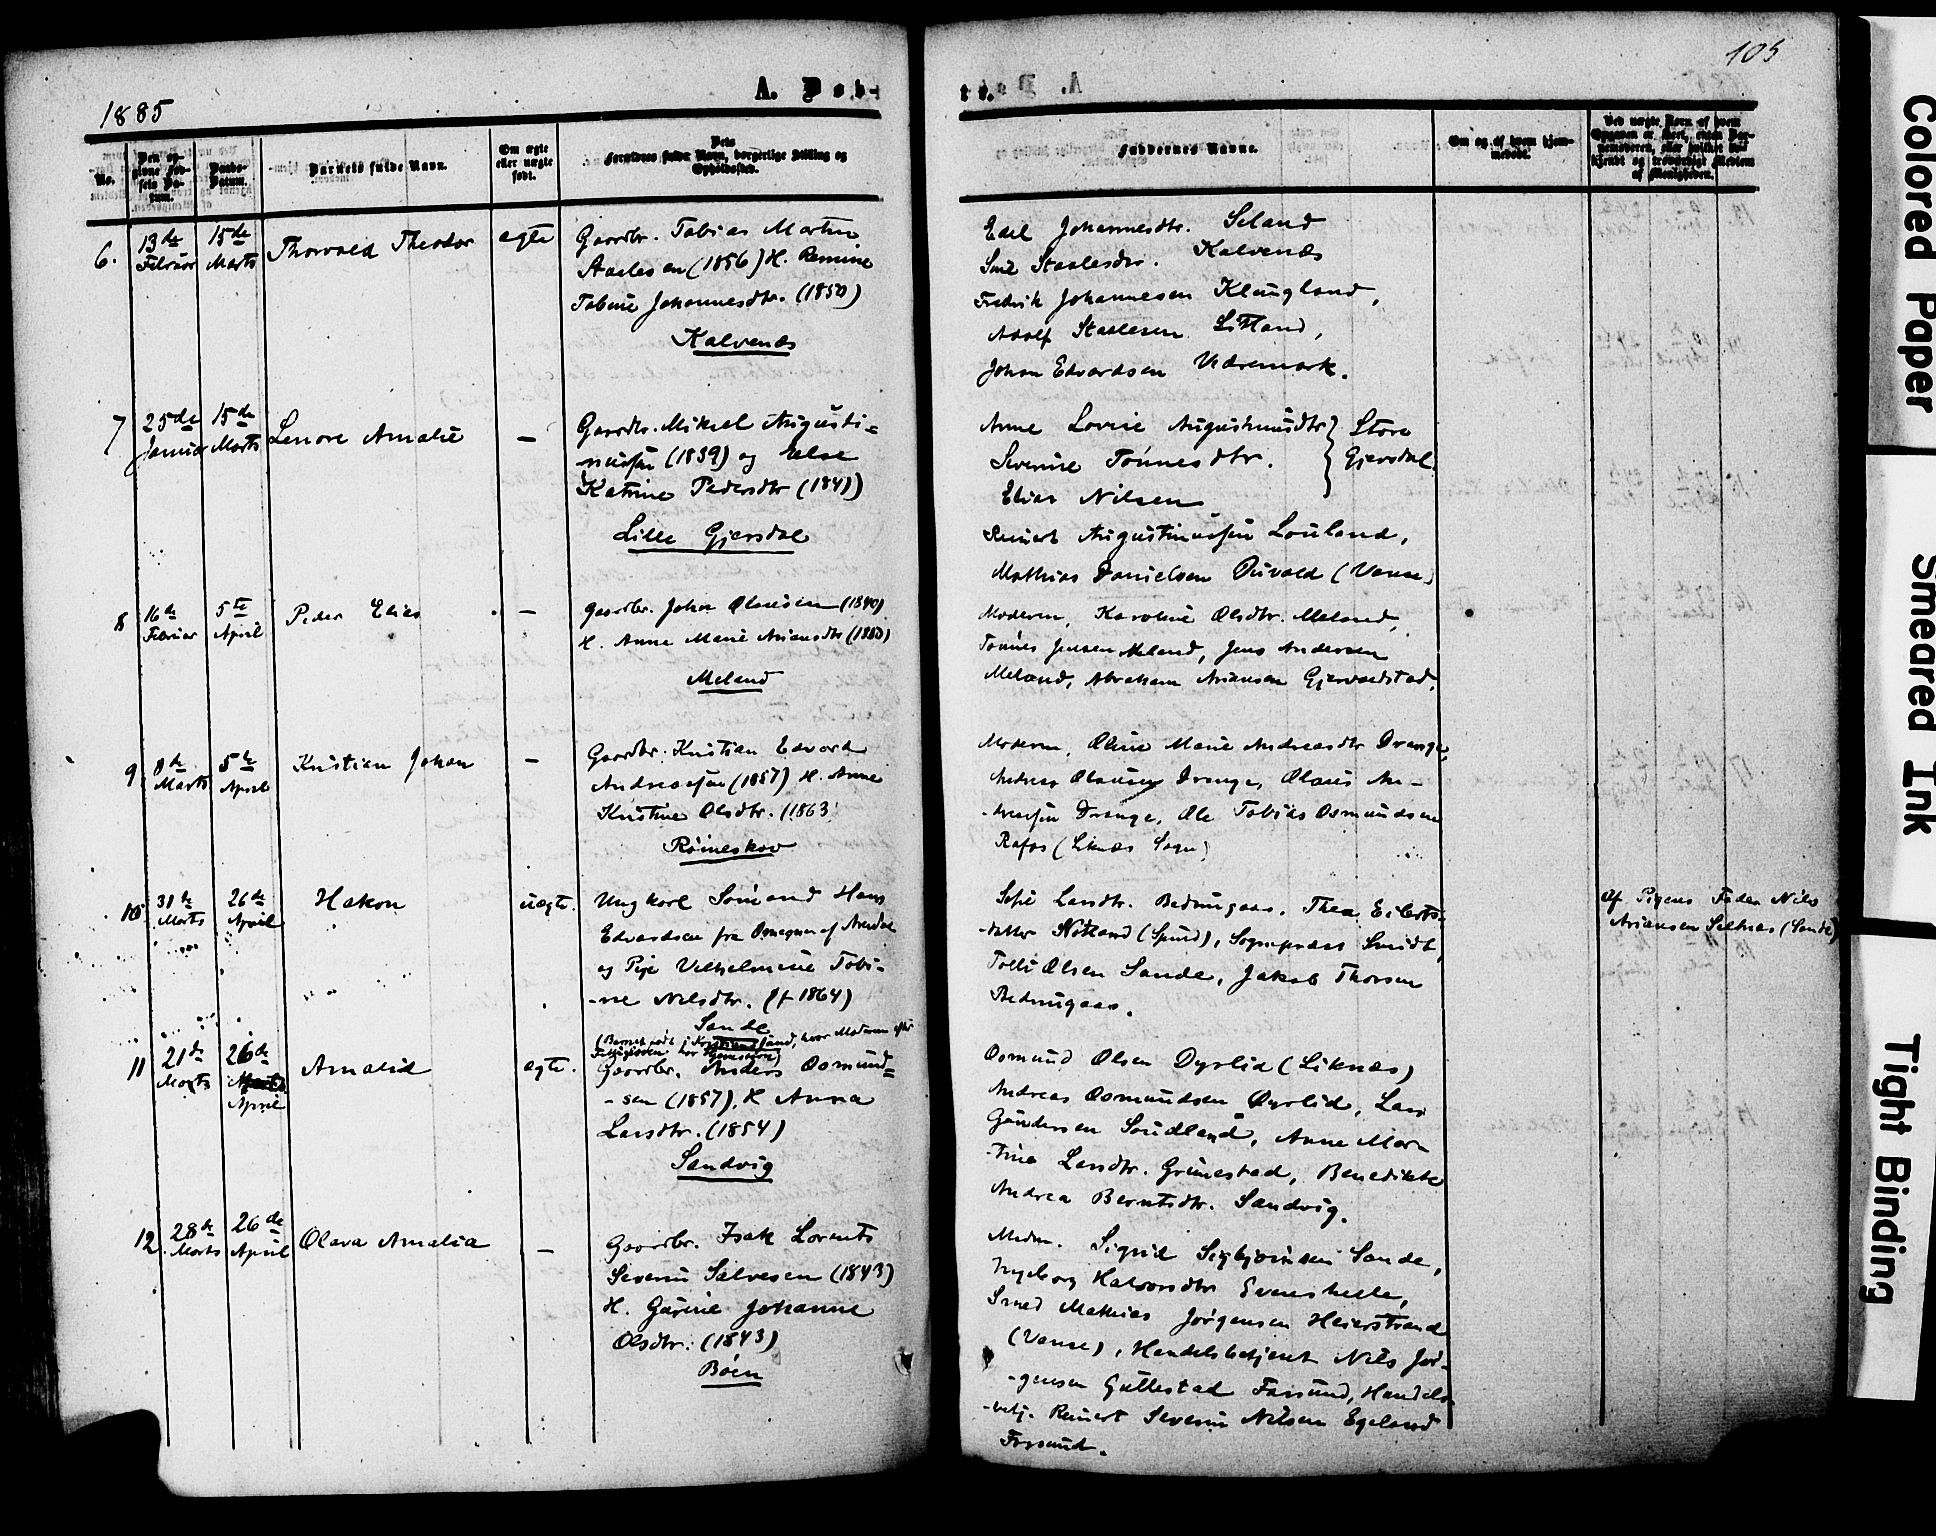 1885
A. Døb-
No.
Den opgivne Fødsels Datum.
Daabs-Datum.
Barnets fulde Navn.
Om ægte eller uægte født.
Dets Forældres fulde Navn, borgerlige Stilling og Opholdssted.
6.
13de Februar
15de Marts
Thorvald Theodor
ægte
Gaardbr. Tobias Martin
Staalesen (1856) H.
Tobine Johannesdtr. (1850)
Kalvenæs
7
25de Januar
15de Marts
Lenore Amalie
—
Gaardbr. Mikael Augusti=
nussen (1839) og Else
Katrine Pedersdtr (1841)
Lille Gjersdal
8
16de Februar
5te April
Peder Elias
—
Gaardbr. Johan Olausen (1840)
H. Anne Marie Ariansdtr (1850)
Meland
9.
8de Marts
5te April
Kristian Johan
—
Gaardbr. Kristian Edvard
Andreassen (1857) H. Anne
Kristine Olsdtr. (1863
Rømeskov
10
31te Marts
26de April
Hakon
uægte.
Ungkarl Sømand Hans
Edvardsen fra Omegnen af Arendal
og Pige Vilhelmine Tobi-
-ne Nilsdtr. (f 1864)
Sande
(Barnet født i Kristianssand, hvor Moderen efter
11
21de Marts
26de
April
Amalie
ægte.
Gaardbr. Anders Osmund=
-sen (1857). H Anna
Larsdtr. (1854)
Sandvig
12
28de Marts
26de April
Olava Amalia
—
Gaardbr. Isak Lorents
Severin Salvesen (1843)
H. Gurine Johanne
Olsdtr. (1843)
Bøen
105
te.
Faddernes Navne.
Om og af hvem hjemmedøbt.
Edel Johannesdtr. Seland
Staalesdtr. Kalvenæs
Fredrik Johannesen Klungland,
Adolf Staalesen Litland,
Johan Edvardsen Vedremark.
Anne Lovise Augustinusdtr } Store
Severine Tønnesdtr. } Gjersdal.
Elias Nilsen
Reinert Augustinussen Louland,
Mathias Danielsen Duvold (Vanse)
Moderen, Karoline Olsdtr. Meland,
Tønnes Jensen Meland, Jens Andersen
Meland, Abraham Ariansen Gjervoldstad.
Moderen, Oline Marie Andreasdtr Drange,
Andreas Olausen Drange, Olaus An-
-dreassen Drange, Ole Tobias Osmundsen
Rafos (Liknæs Sogn)
Sofie Larsdtr. Bedringaas. Thea Eilerts-
-datter Nitland (Spind), Sognepræst Smidt,
Tolli Olsen Sande, Jakob Thorsen
Bedringaas.
Af Pigens Fader Nils
Ariansen Selnæs (Sande)
Osmund Olsen Dyrlid (Liknæs)
Andreas Osmundsen Dyrlid, Lars
Gundersen Sudland, Anne Mar-
-tine Larsdtr. Grimestad, Benedikte
Andrea Berntsdtr. Sandvig.
Modrn. Sigrid Sigbjørnsen Sande,
Ingeborg Halvorsdtr Evenshelle,
Smed Mathias Jørgensen Heierstrand
(Vanse), Handelsbetjent Nils Jør-
-gensen Gullestad Farsund, Handels-
-betj. Reinert Severin Nilsen Egeland
Farsund.
Colored Paper
Smeared Ink
Tight Binding